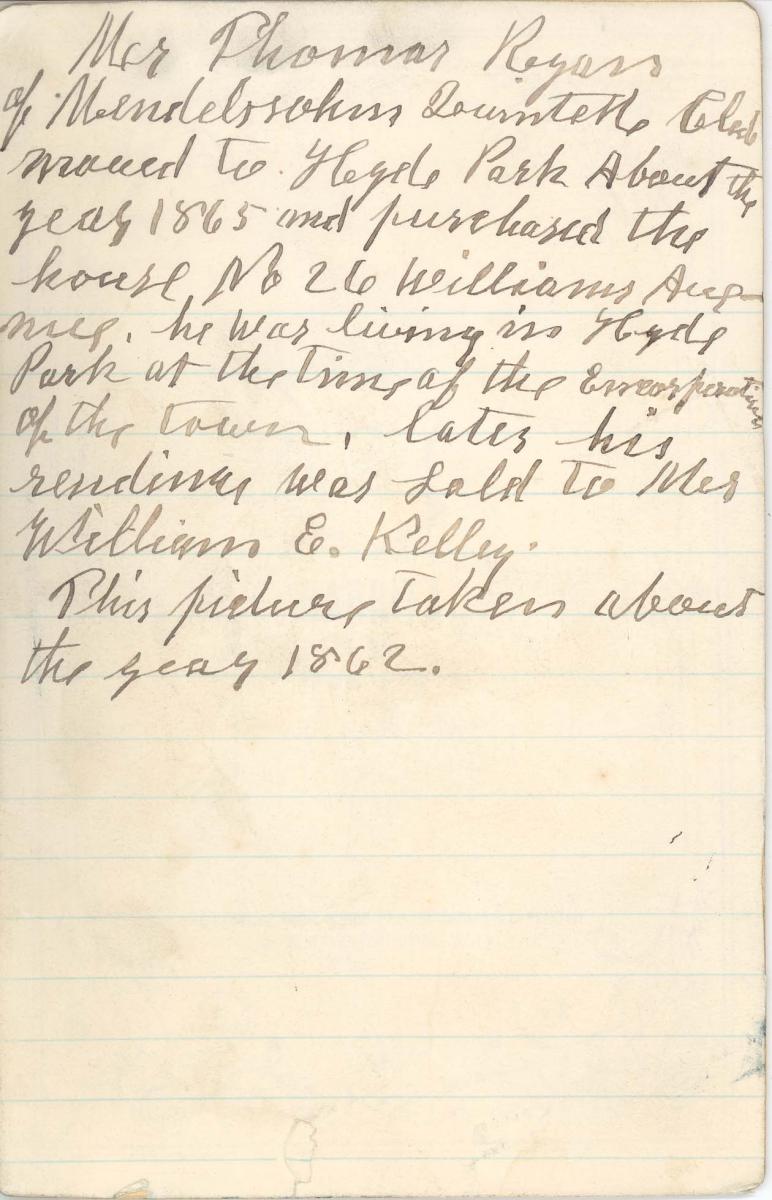 Mr Thomas Ryan
of Mendelssohn Quintette Club
moved to Hyde Park About the
year 1865 and purchased the
house No 26 Williams Ave-
nue, he was living in Hyde
Park at the time of the Encorporation
of the town, later his
residence was sold to Mr
William E. Kelley.
This picture taken about
the year 1862.